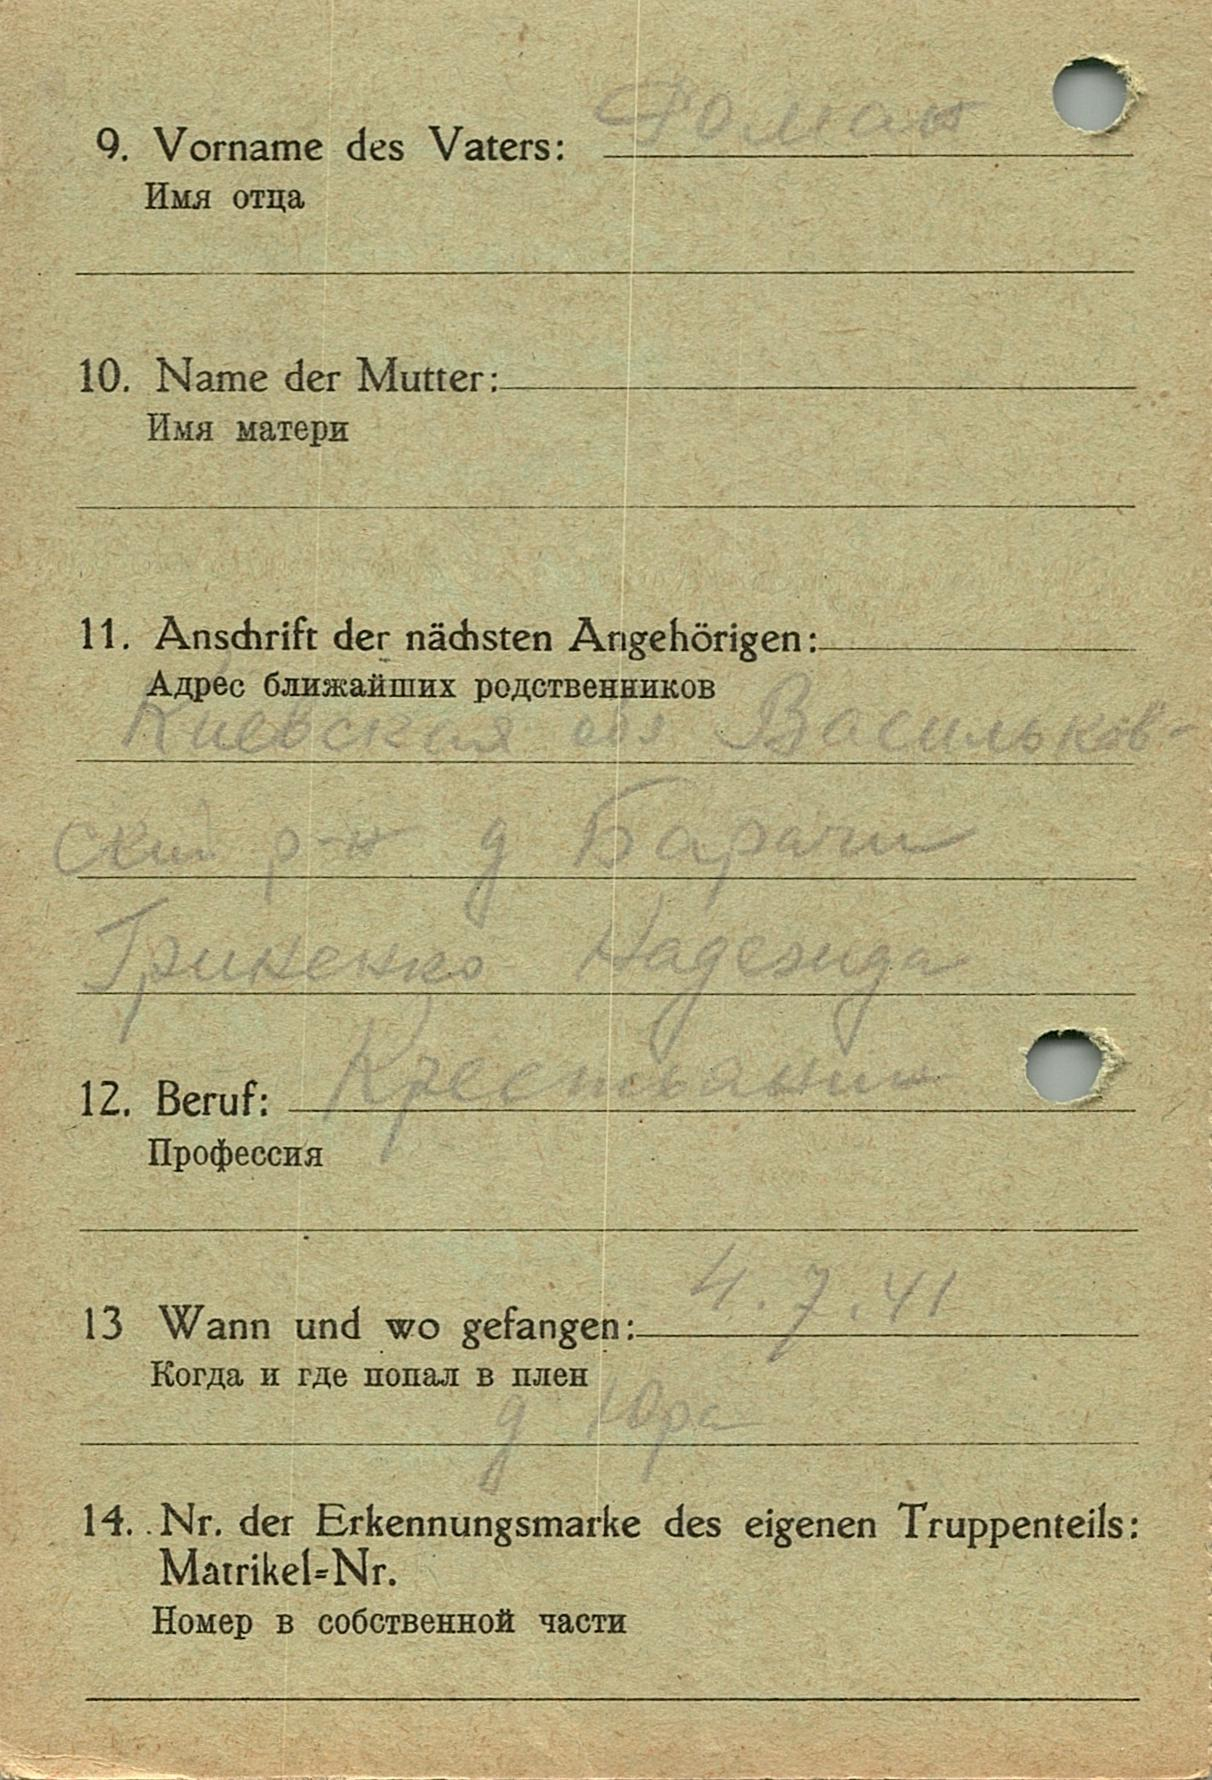 9. Vorname des Vaters: Роман
Имя отца
10. Name der Mutter:
Имя матери
11. Anschrift der nächsten Angehörigen:
Адрес ближайших родственников
Киевская обл Васильков-
ский р-н д Барачи
Гриненко Надежда
12. Beruf: Крестьянин
Профессия
13 Wann und wo gefangen: 4.7.41
Когда и где попал в плен
д Юра
14. Nr. der Erkennungsmarke des eigenen Truppenteils:
Matrikel=Nr.
Номер в собственной части